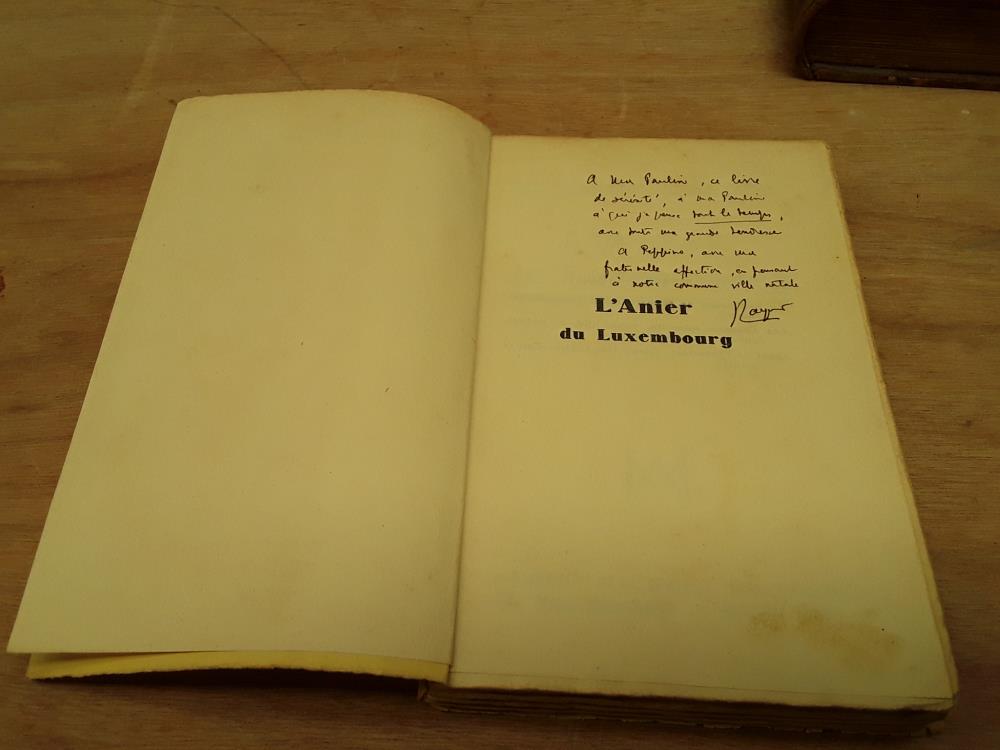 A ma Paulin, ce livre
de sérénité, à ma Paulin
à qui je pense tout le temps,
avec toute ma grande tendresse
A Peppino, avec ma
fraternelle affection, en pensant
à notre commune ville natale
L'Anier
du Luxembourg